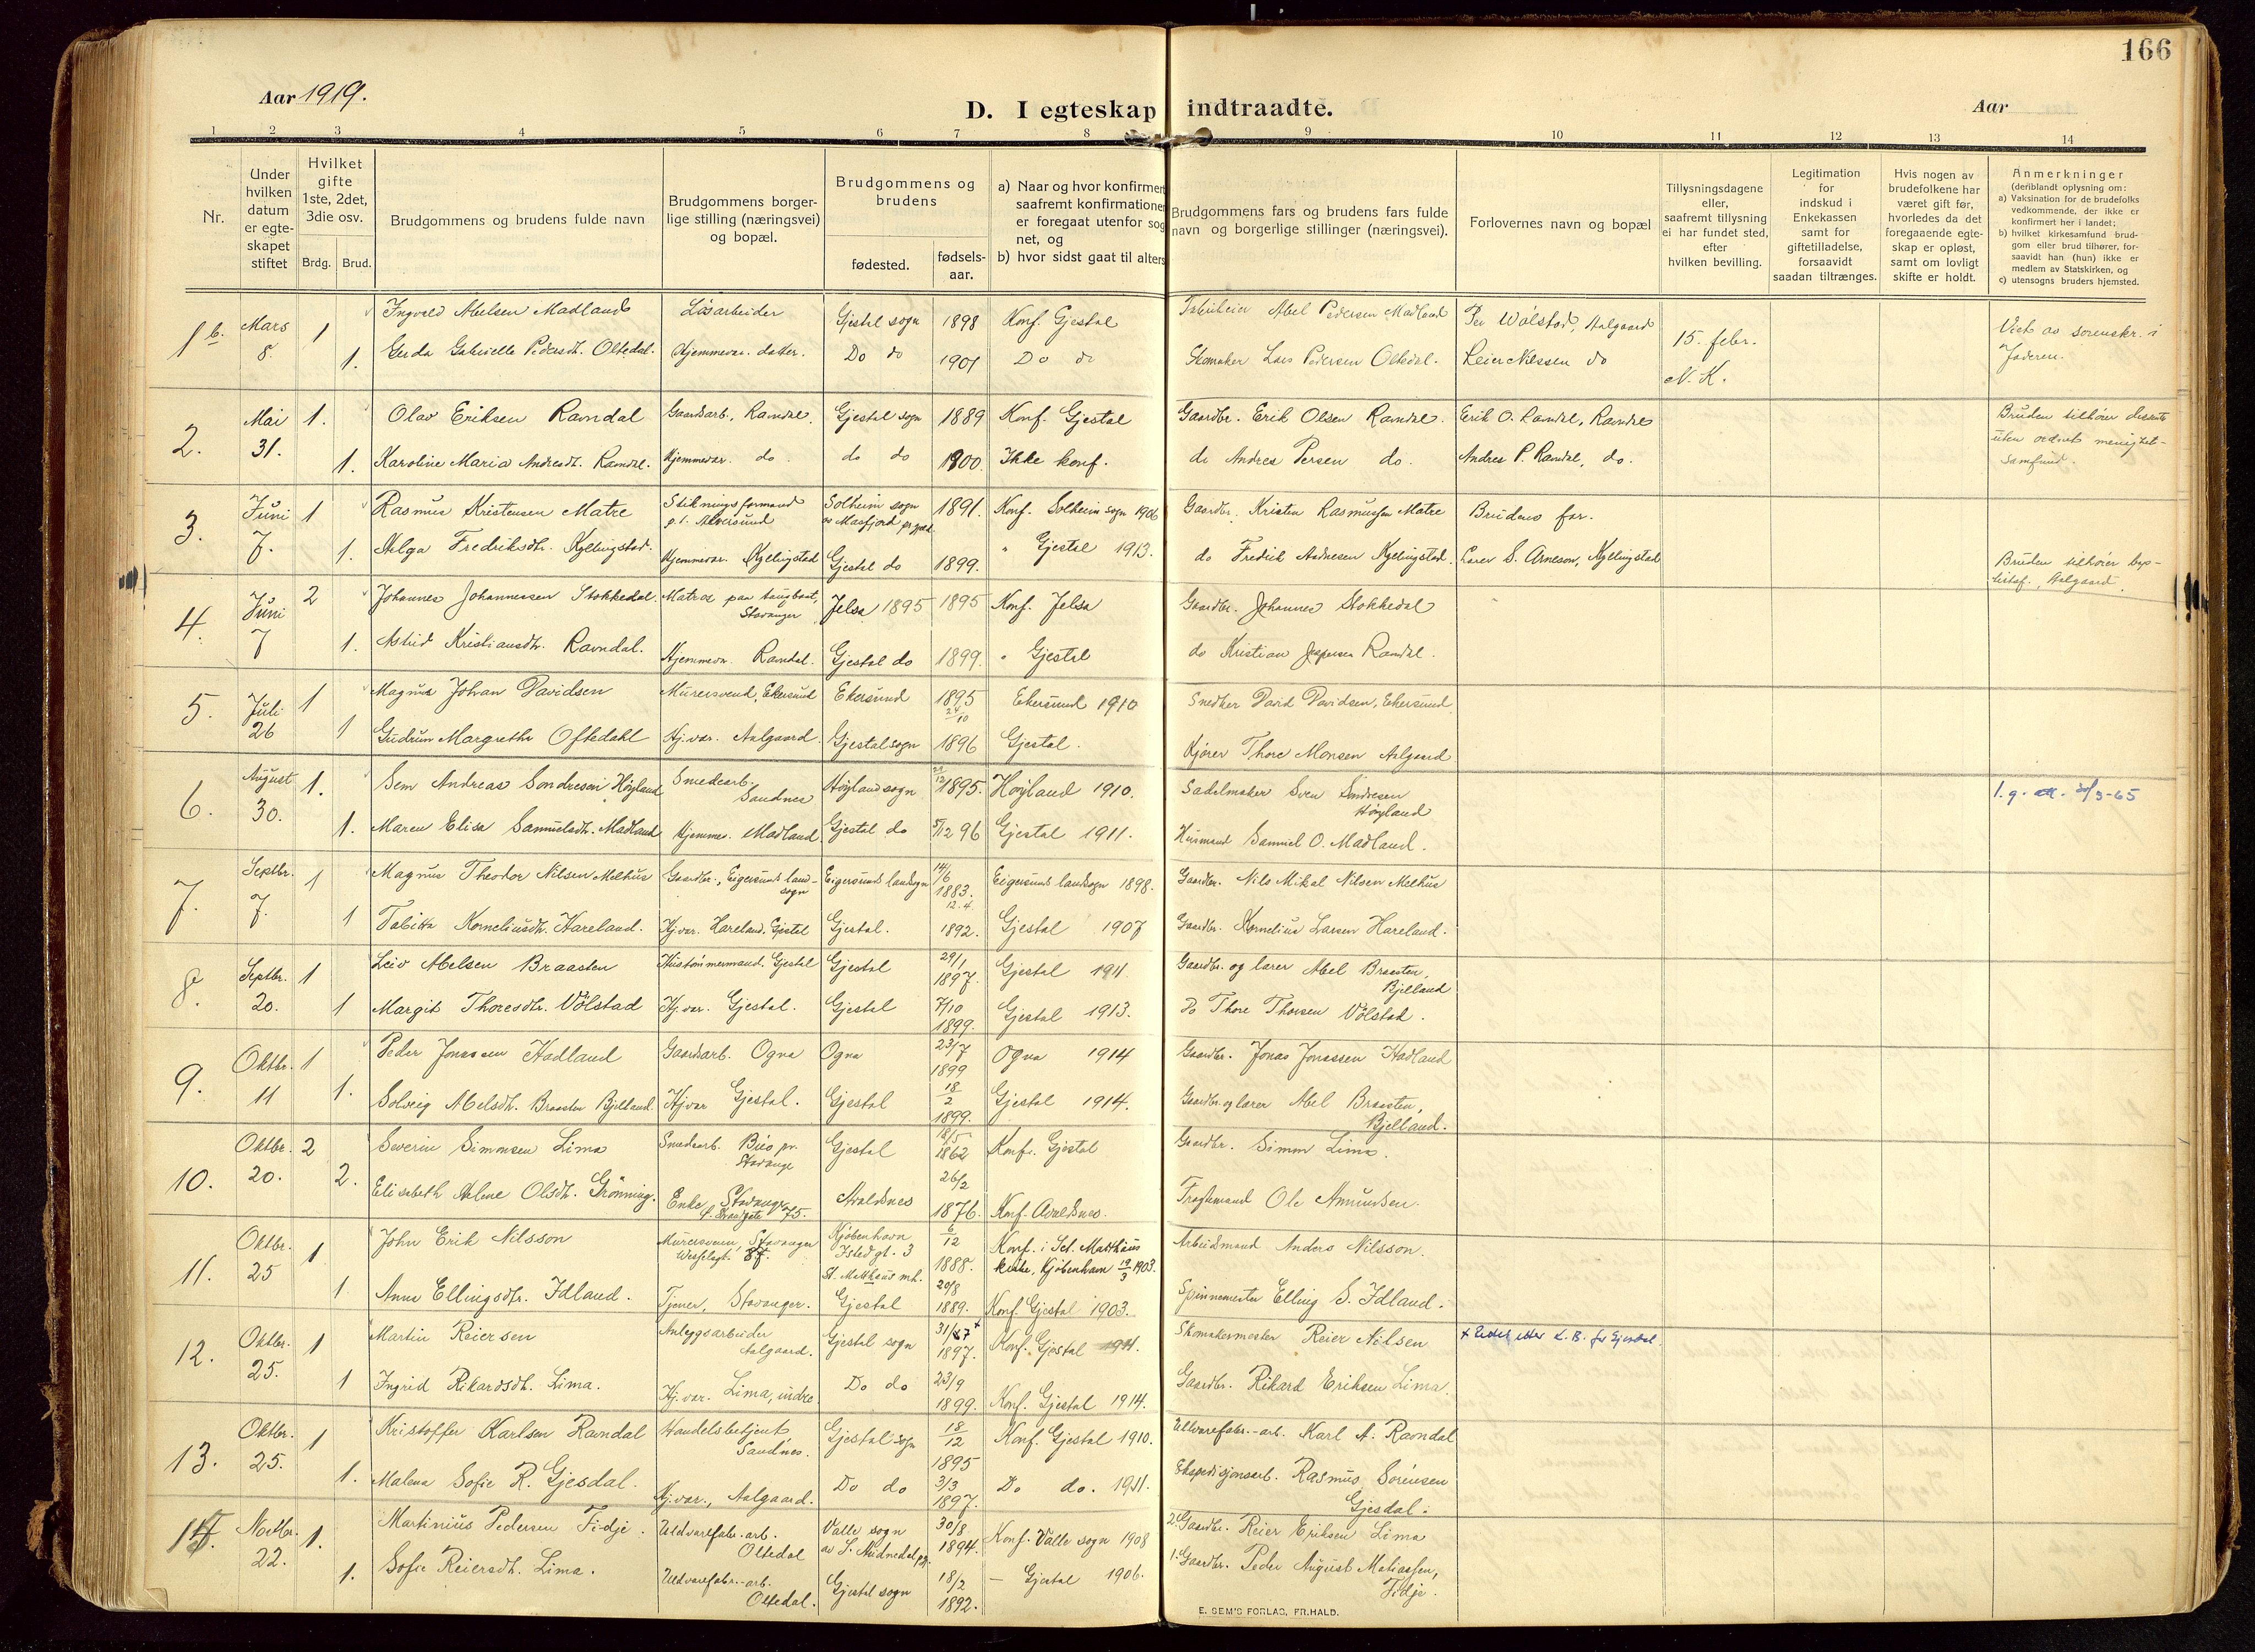 166
Aar 1919.
D. I egteskap indtraadte.
Aar
1 2 3 4 5 6 7 8 9 10 11 12 13 14
Nr.
Under hvilken datum er egteskapet stiftet
Hvilket gifte 1ste, 2det, 3die osv.
Brdg. Brud.
Brudgommens og brudens fulde navn
Brudgommens borgerlige stilling (næringsvei) og bopæl.
Brudgommens og brudens
fødested.
fødselsaar.
a) Naar og hvor konfirmert
saafremt konfirmationen
er foregaat utenfor sog
net, og
b) hvor sidst gaat til alters
Brudgommens fars og brudens fars fulde
navn og borgerlige stillinger (næringsvei).
Forlovernes navn og bopæl
Tillysningsdagene
eller,
saafremt tillysning
ei har fundet sted,
efter
hvilken bevilling.
Legitimation
for
indskud i
Enkekassen
samt for
giftetilladelse,
forsaavidt
saadan tiltrænges.
Hvis nogen av
brudefolkene har
været gift før,
hvorledes da det
foregaaende egteskap er opløst,
samt om lovligt
skifte er holdt.
Anmerkninger
(deriblandt oplysning om:
a) Vaksination for de brudefolks
vedkommende, der ikke er
konfirmert her i landet;
b) hvilket kirkesamfund brudgom eller brud tilhører, forsaavidt han (hun) ikke er
medlem av Statskirken, og
c) utensogns bruders hjemsted.
1 b. Mars 8. 1 Ingvald Abelsen Madland Løsarbeider Gjestal sogn 1898 Konf. Gjestal Abel Pedersen Madland Per Wølstad, Aalgaard 15. febr. Viet av sorenskr. i
1. Gerda Gabrielle Pedersdt. Oltedal. Hjemmevær. datter. Do do 1901 Do do Skomaker Lars Pedersen Oltedal. Reier Nilssen do N. K. Jæderen.
2. Mai 31. 1. Olav Eriksen Ravndal Gaardsarb., Ravndal. Gjestal sogn 1889 Konf. Gjestal Gaardbr. Erik Olsen Ravndal. Erik O. Ravndal, Ravndal Bruden tilhører
1. Karoline Maria Andresdt. Ravndal. Hjemmevær. do. do do 1900. Ikke konf. do Andres Persen do. Andres P. Ravndal, do. uten ordnet menighets-
samfund.
3. Juni 7. 1 Rasmus Kristensen Matre Stikningsformand
p.t. Alversund Solheim sogn
av Masfjord pr.gjeld 1891. Konf. Solheim sogn 1906 Gaardbr. Kristen Rasmussen Matre Brudens far.
1. Helga Fredriksdtr. Kyllingstad. Hjemmevær. Kyllingstad Gjestal do 1899. " Gjestal 1913. do Fredrik Aadnesen Kyllingstad. Lærer S. Arneson, Kyllingstad Bruden tilhører bap-
tistsf., Aalgaard.
4. Juni 7 2 Johannes Johannessen Stokkedal. Matros paa taugbaat,
Stavanger Jelsa 1895 1895 Konf. Jelsa Gaardbr. Johannes Stokkedal
1. Astrid Kristiansdtr. Ravndal. Hjemmevær. Ravndal. Gjestal do 1899. " Gjestal do Kristian Jespersen Ravndal.
5. Juli 26 1 Magnus Johan Davidsen Murersvend, Ekersund Ekersund 1895 24/10 Ekersund 1910 Snedker David Davidsen, Ekersund
1 Gudrun Margrethe Oftedahl Hj.vær. Aalgaard. Gjestal sogn 1896 Gjestal. Kjører Thore Monsen Aalgaard
6. August 30. 1. Sem Andreas Sondresen Høyland Smedearb.
Sandnes Høyland sogn 1895. Høyland 1910. Sadelmaker Sven Sondresen
Høyland
1. Maren Elisa Samuelsdtr. Madland Hjemmev. Madland Gjestal do 5/12 96 Gjestal 1911. Husmand Samuel O. Madland.
7. Septbr. 7. 1 Magnus Theodor Nilsen Melhus Gaardbr., Eigersund land-
sogn Eigersund landsogn 14/6 1883. Eigersund landsogn 1898. Gaardbr. Nils Mikal Nilsen Melhus
1 Tabitta Korneliusdt. Hareland. Hj.vær. Hareland. Gjestal Gjestal. 12.4. 1892. Gjestal 1907 Gaardbr. Kornelius Larsen Hareland.
8. Septbr. 20. 1 Leiv Abelsen Braasten Hustømmermand. Gjestal Gjestal 29/1 1897. Gjestal 1911. Gaardbr. og lærer Abel Braasten,
Bjelland
1 Margit Thoresdtr. Vølstad Hj.vær. Gjestal. Gjestal 7/10 1899. Gjestal 1913. Do Thore Thorsen Vølstad.
9. Oktbr. 11 1 Peder Jonassen Hadland Gaardsarb. Ogna Ogna 23/7 1899 Ogna 1914 Gaardbr. Jonas Jonassen Hadland
1. Solveig Abelsdt. Braasten Bjelland. Hj.vær Gjestal. Gjestal 18/2 1899. Gjestal 1914. Gaardbr. og lærer Abel Braasten,
Bjelland.
10. Oktbr. 20. 2 Severin Simonsen Lima Smedearb. Buø pr.
Stavange Gjestal 18/5 1862 Konf. Gjestal Gaardbr. Simon Lima.
2. Elisabeth Helene Olsdt. Grönning. Enke, Stavanger
75. Avaldsnes 26/2 1876. Konf. Avaldsnes. Ole Amundsen.
11. Oktbr. 25 1 John Erik Nilsson Murersvenn, Stavanger
Kjøbenhavn
Istedgt. 3
St. Matthæus mh. 6/12 1888. Konf. i Sct. Matthæus
kirke, Kjøbenhavn 19/3 1903. Arbeidsmand Anders Nilsson.
1. Anna Ellingsdtr. Idland. Tjener, Stavanger. Gjestal 20/8 1889. Konf. Gjestal 1903. Spinnemester Elling S. Idland.
12. Oktbr. 25. 1 Martin Reiersen Anlegsarbeider
Aalgaard. Gjestal sogn 31/7 + 1897. Konf. Gjestal 1911. Skomakermester Reier Nilsen
1 Ingrid Rikardsdt. Lima. Hj.vær. Lima, indre Do do 23/9 1899. Konf. Gjestal 1914. Gaardbr. Rikard Eriksen Lima.
13. Oktbr. 25. 1 Kristoffer Karlsen Ravndal Handelsbetjent
Sandnes. Gjestal sogn 18/12 1895 Konf. Gjestal 1910. Uldvarefabr.-arb. Karl A. Ravndal
1. Malena Sofie R. Gjesdal. Hj.vær., Aalgaard. Do do 3/3 1897. Do do. 1911. Ekspedisjonsarb. Rasmus Sørensen
Gjesdal.
14. Novbr. 22. 1. Martinius Pedersen Fidje. Uldvarefabr.-arb.
Oltedal Valle sogn
av S. Audnedal pr. 30/8 1894. Konf. Valle sogn 1908 2. Gaardbr. Reier Eriksen Lima
1. Sofie Reiersdt. Lima. Uldvarefabr.-arb.
Oltedal. Gjestal sogn 18/2 1892. — Gjestal 1906. 1. Gaardbr. Peder August Matiassen,
Fidje.
E. SEM'S FORLAG, FR.HALD.